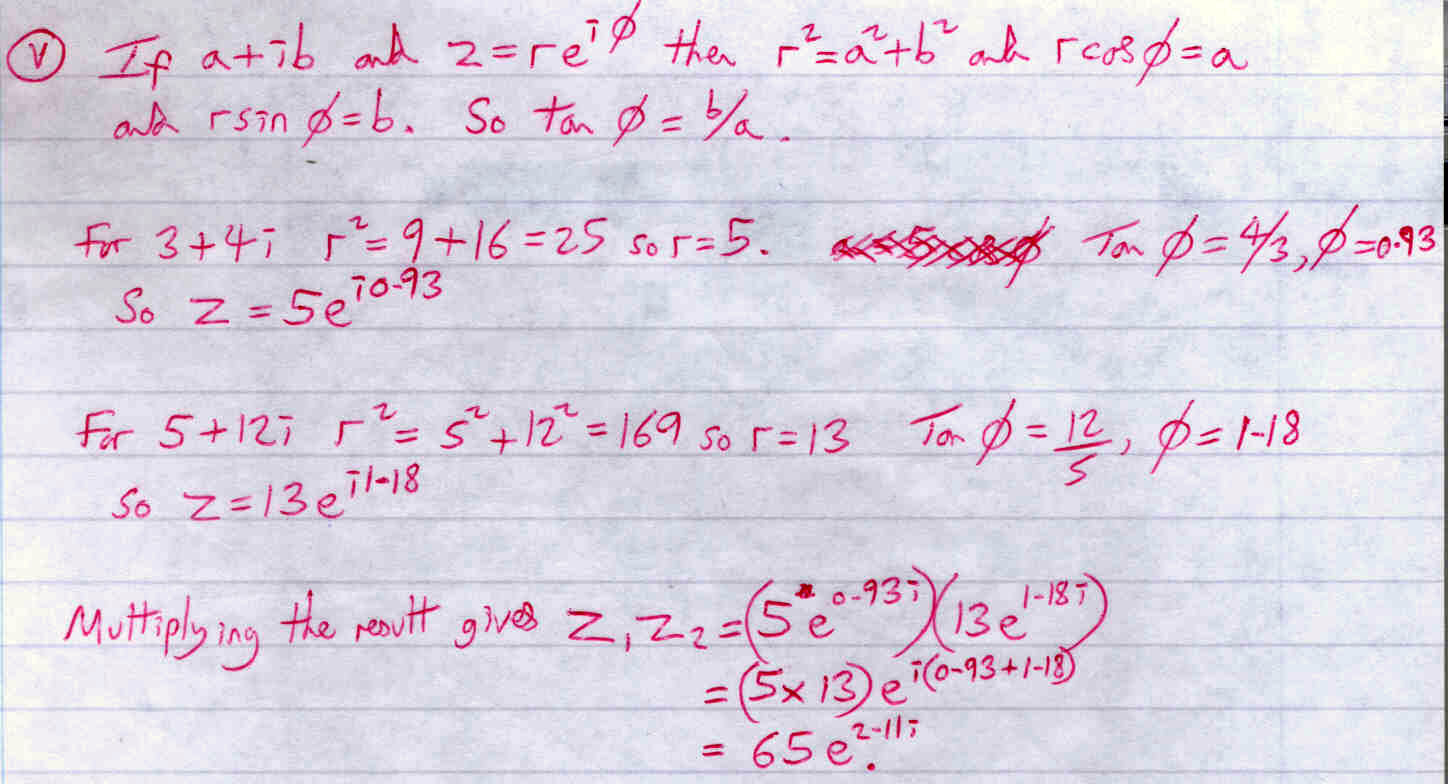 (v) If a+ib and z=re^{iφ} then r²=a²+b² and rcosφ=a
and rsin φ=b. So tan φ = b/a.
For 3+4i r²=9+16=25 so r=5. Tan φ=4/3, φ=0.93
So z=5e^{i0.93}
For 5+12i r²=5²+12²=169 so r=13 Tan φ=12/5, φ=1.18
So z=13e^{i1.18}
Multiplying the result gives z₁z₂=(5e^{0.93i})(13e^{1.18i})
=(5×13)e^{i(0.93+1.18)}
= 65e^{2.11i}.